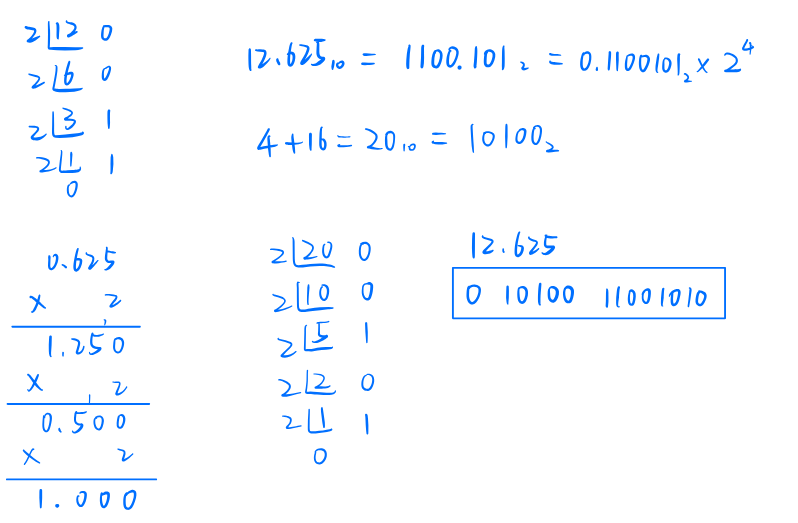 2 12 0
2 6 0
2 3 1
2 1 1
0
12.625₁₀ = 1100.101₂ = 0.1100101₂ × 2⁴
4+16 = 20₁₀ = 10100₂
0.625
× 2
1.250
× 2
0.500
× 2
1.000
2 20 0
2 10 0
2 5 1
2 2 0
2 1 1
0
12.625
0 10100 11001010